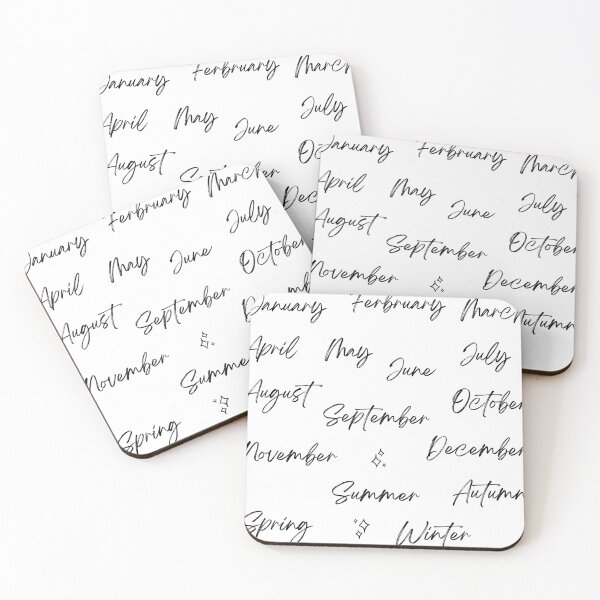 January Ferbruary March
April May June July
August
January Ferbruary March
April May June July
August September October
November December
Autumn
January Ferbruary March
April May June July
August September October
November Summer
Spring
January Ferbruary March
April May June July
August September October
November December
Summer Autumn
Spring Winter